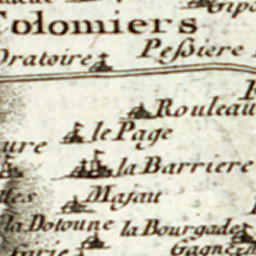 Colomiers
Oratoire
Peſsiere
Rouleau
le Page
la Barriere
Majau
la Dotoune
la Bourgade